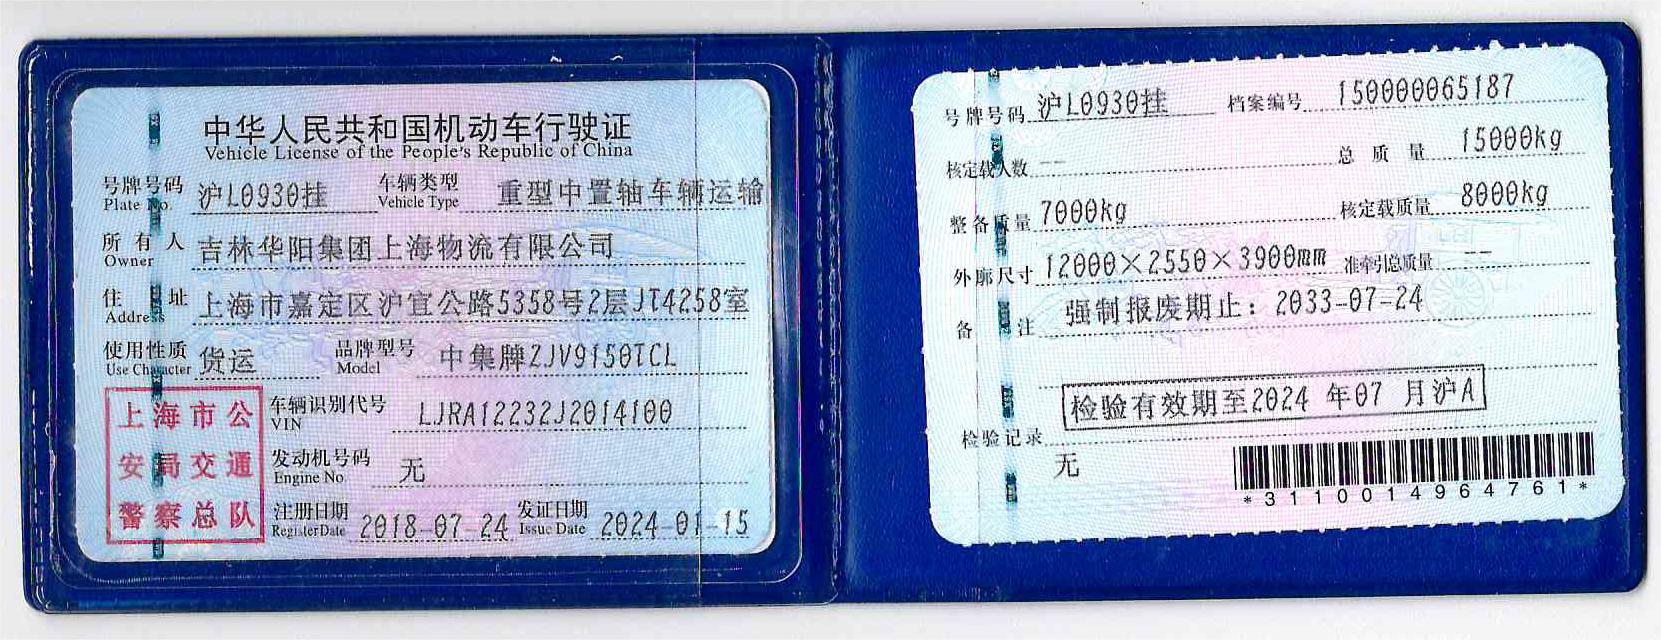 中华人民共和国机动车行驶证
Vehicle License of the People's Republic of China
号牌号码 沪L0930挂 车辆类型 重型中置轴车辆运输
Plate No. Vehicle Type
所有人 吉林华阳集团上海物流有限公司
Owner
住址 上海市嘉定区沪宜公路5358号2层JT4258室
Address
使用性质 货运 品牌型号 中集牌ZJV9150TCL
Use Character Model
上海市公
安局交通
警察总队
车辆识别代号 LJRA12232J2014100
VIN
发动机号码 无
Engine No.
注册日期 2018-07-24 发证日期 2024-01-15
Register Date Issue Date
号牌号码 沪L0930挂 档案编号 150000065187
核定载人数 -- 总质量 15000kg
整备质量 7000kg 核定载质量 8000kg
外廓尺寸 12000×2550×3900mm 准牵引总质量 --
备注 强制报废期止：2033-07-24
检验有效期至2024 年07 月沪A
检验记录
无
*3110014964761*